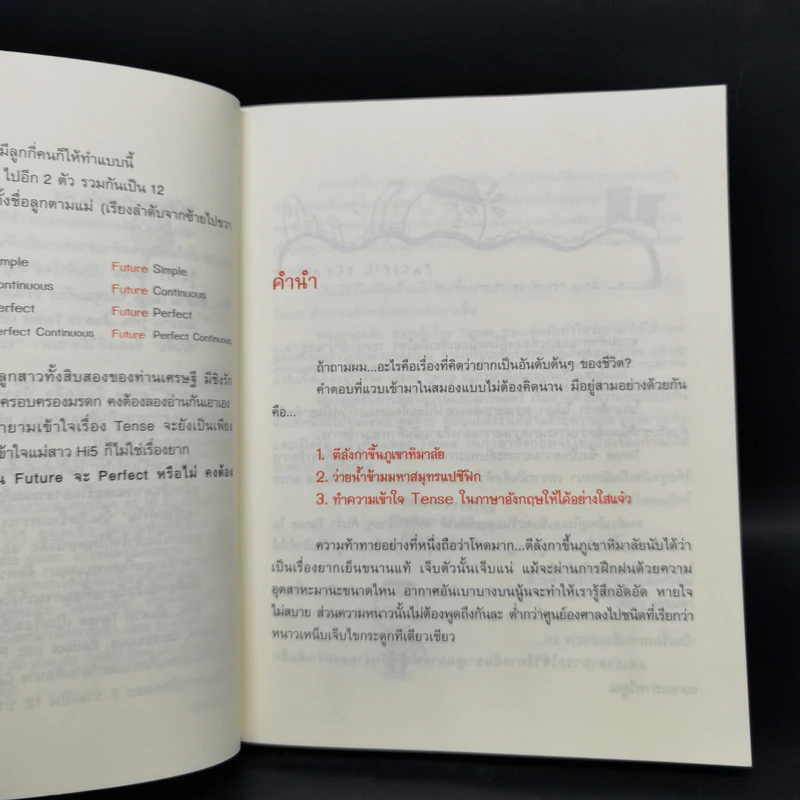 มีลูกกี่คนก็ให้ทำแบบนี้
ไปอีก 2 ตัว รวมกันเป็น 12
ตั้งชื่อลูกตามแม่ (เรียงลำดับจากซ้ายไปขวา
Future Simple
Continuous Future Continuous
Future Perfect
Perfect Continuous Future Perfect Continuous
ลูกสาวทั้งสิบสองของท่านเศรษฐี มีชิงรัก
ครอบครองมรดก คงต้องลองอ่านกันเอาเอง
เข้าใจเรื่อง Tense จะยังเป็นเพียง
เข้าใจแม่สาว Hi5 ก็ไม่ใช่เรื่องยาก
Future จะ Perfect หรือไม่ คงต้อง
คำนำ
ถ้าถามผม...อะไรคือเรื่องที่คิดว่ายากเป็นอันดับต้นๆ ของชีวิต?
คำตอบที่แวบเข้ามาในสมองแบบไม่ต้องคิดนาน มีอยู่สามอย่างด้วยกัน
คือ...
1. ตีลังกาขึ้นภูเขาหิมาลัย
2. ว่ายน้ำข้ามมหาสมุทรแปซิฟิก
3. ทำความเข้าใจ Tense ในภาษาอังกฤษให้ได้อย่างใสแจ๋ว
ความท้าทายอย่างที่หนึ่งถือว่าโหดมาก...ตีลังกาขึ้นภูเขาหิมาลัยนับได้ว่า
เป็นเรื่องยากเย็นขนานแท้ เจ็บตัวนั้นเจ็บแน่ แม้จะผ่านการฝึกฝนด้วยความ
อุตสาหะมานะขนาดไหน อากาศอันเบาบางบนนู้นจะทำให้เรารู้สึกอัดอัด หายใจ
ไม่สบาย ส่วนความหนาวนั้นไม่ต้องพูดถึงกันละ ต่ำกว่าศูนย์องศาลงไปชนิดที่เรียกว่า
หนาวเหน็บเจ็บไขกระดูกทีเดียวเชียว